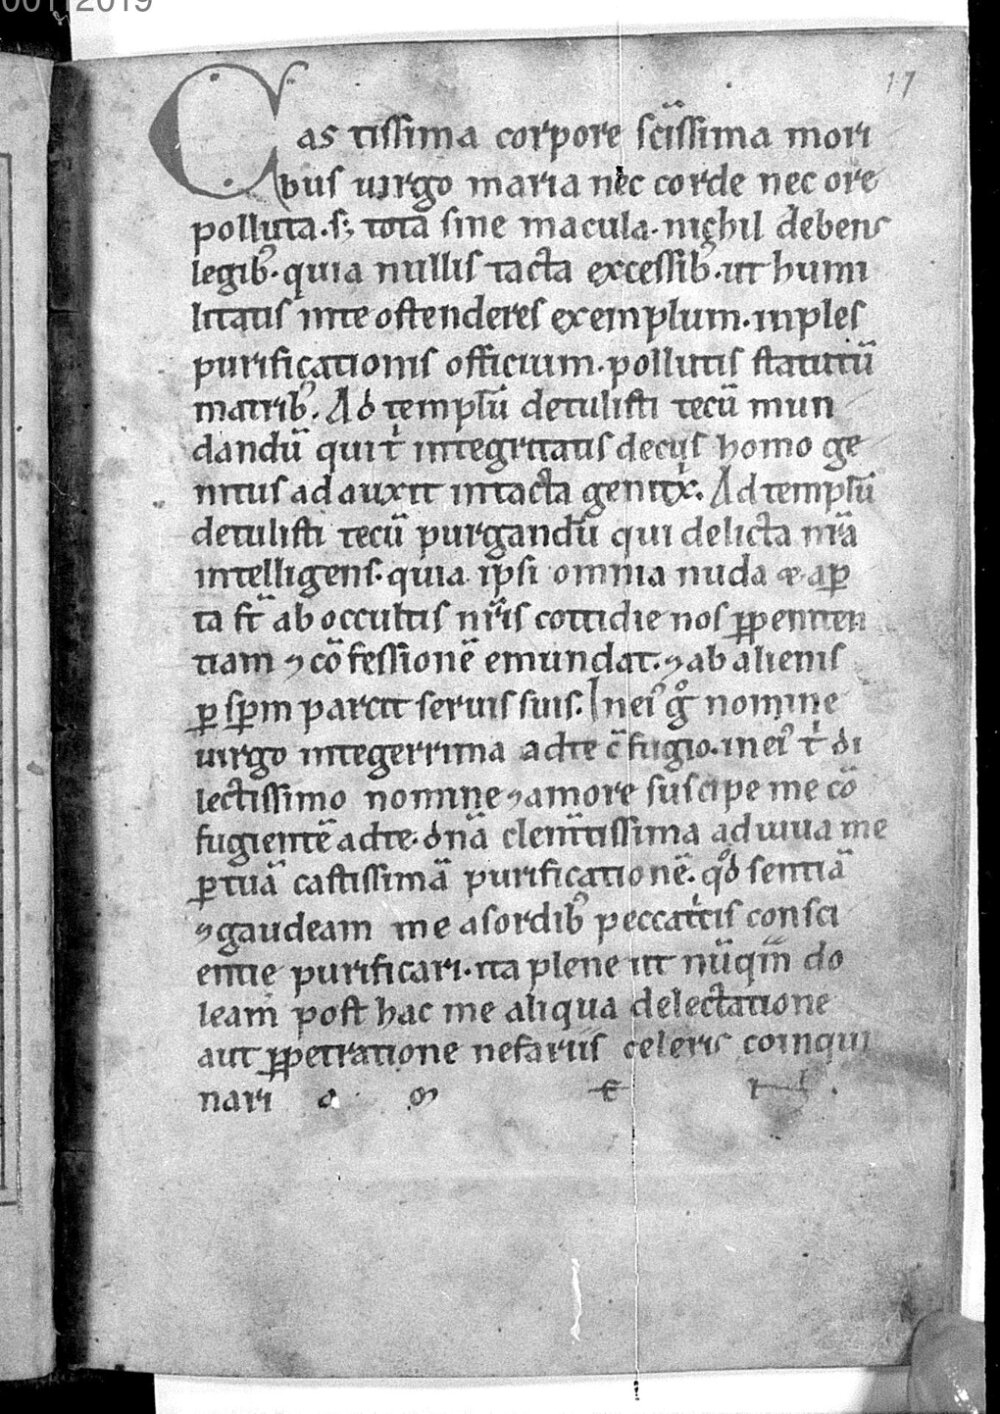 00112019
17
Cas tissima corpore sc̄issima mori
bus uirgo maria nec corde nec ore
polluta. sꝫ tota sine macula. nichil debens
legibꝰ. quia nullis tacta excessibꝰ. ut humi
litatis inte ostenderes exemplum. inples
purificationis officium. pollutis statutū
matribꝰ. Ad templū detulisti tecū mun
dandū qui t̓ integritatis decus homo ge
nitus ad auxit intacta genitx̓. Ad templū
detulisti tecū purgandū qui delicta nr̄a
intelligens. quia ipsi omnia nuda & aꝑ
ta st̄ ab occultis nr̄is cottidie nos ꝑpeniten
tiam ⁊ cōfessionē emundat. ⁊ ab alienis
ꝑ sp̄m parcit seruis suis. In eiꝰ gͦ nomine
uirgo integerrima adte c̄fugio. in eiꝰ t̓ di
lectissimo nomine ⁊ amore suscipe me cō
fugientē adte. dn̄a clem̄tissima adiuua me
ꝑ tuā castissimā purificationē. qͦd sentiā
⁊ gaudeam me asordibꝰ peccat̓cis consci
entie purificari. ita plene ut nūqm̄ do
leam post hac me aliqua delectatione
aut ꝑpetratione nefariis celeris coinqui
nari a m e n.